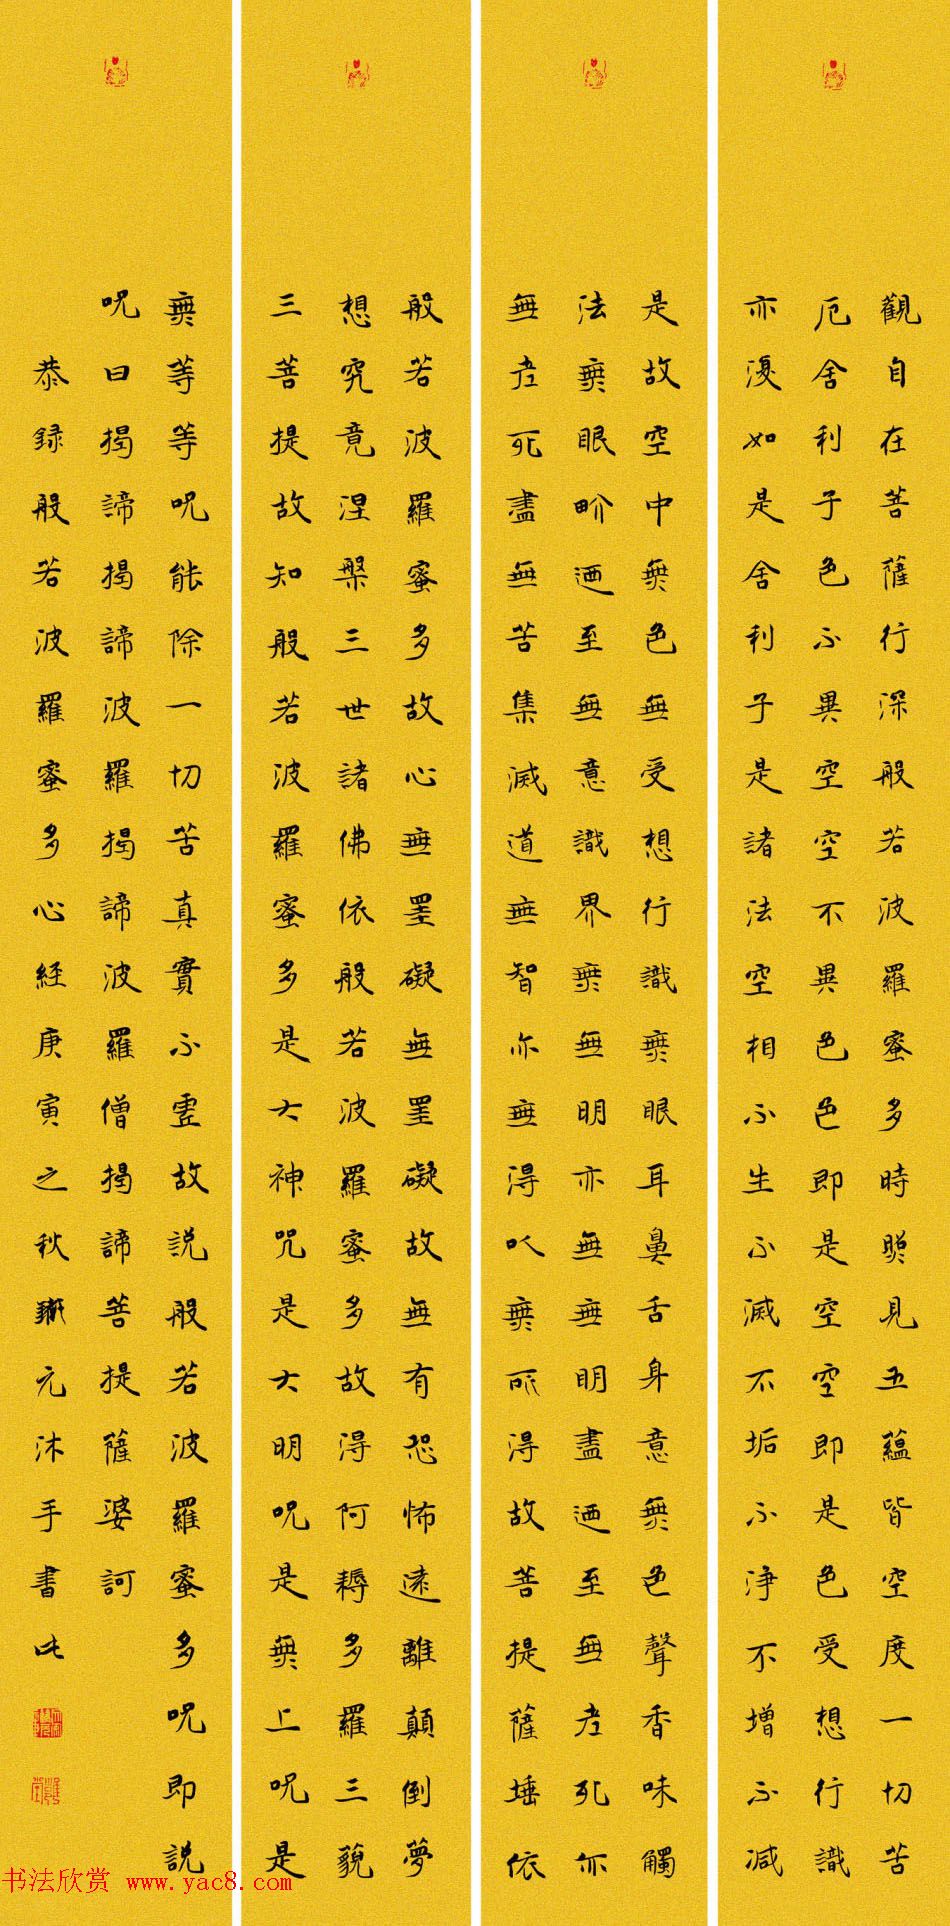 觀自在菩薩行深般若波羅蜜多時照見五蘊皆空度一切苦
厄舍利子色不異空空不異色色即是空空即是色受想行識
亦復如是舍利子是諸法空相不生不滅不垢不淨不增不減
是故空中無色無受想行識無眼耳鼻舌身意無色聲香味觸
法無眼界迺至無意識界無無明亦無無明盡迺至無老死亦
無老死盡無苦集滅道無智亦無得以無所得故菩提薩埵依
般若波羅蜜多故心無罣礙無罣礙故無有恐怖遠離顛倒夢
想究竟涅槃三世諸佛依般若波羅蜜多故得阿耨多羅三藐
三菩提故知般若波羅蜜多是大神咒是大明呪是無上呪是
無等等呪能除一切苦真實不虛故説般若波羅蜜多呪即説
呪曰揭諦揭諦波羅揭諦波羅僧揭諦菩提薩婆訶
恭録般若波羅蜜多心經庚寅之秋元沐手書此
书法欣赏 www.yac8.com